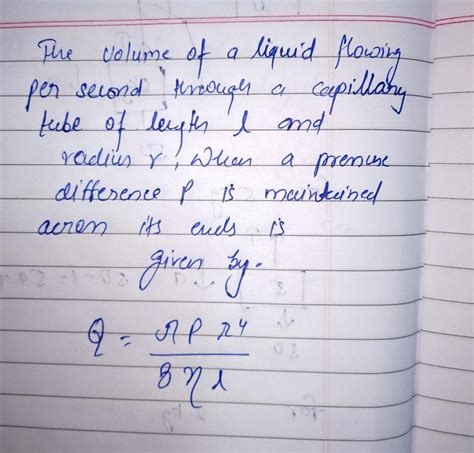 The volume of a liquid flowing
per second through a capillary
tube of length l and
radius r, when a pressure
difference P is maintained
across its ends is
given by.
Q = πPr⁴
8ηl